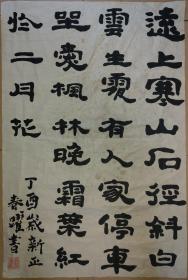 遠上寒山石徑斜白
雲生處有人家停車
坐愛楓林晚霜葉紅
於二月花
丁酉歲新正
泰躍書